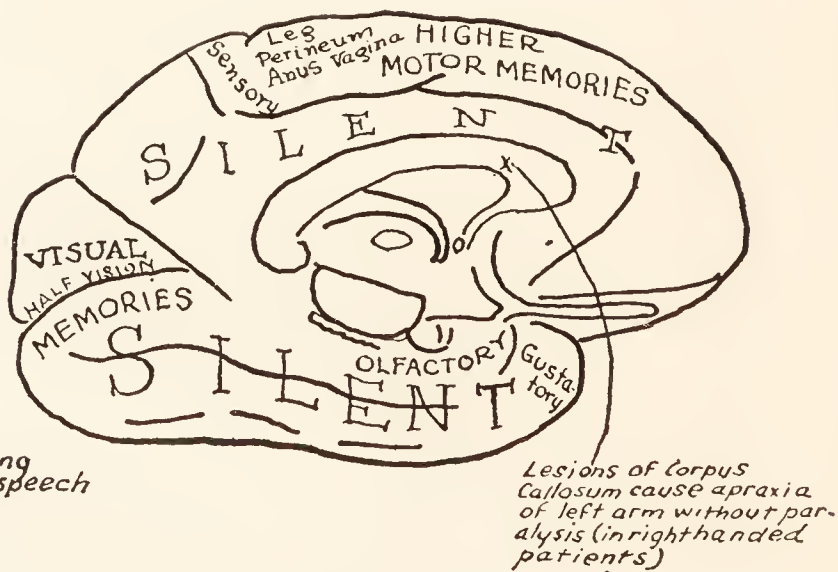 Leg
Perineum
Anus Vagina
Sensory
HIGHER
MOTOR MEMORIES
SILENT
x
VISUAL
HALF VISION
MEMORIES
SILENT
OLFACTORY
Gusta-
tory
ng
speech
Lesions of Corpus
Callosum cause apraxia
of left arm without par-
alysis (in righthanded
patients)